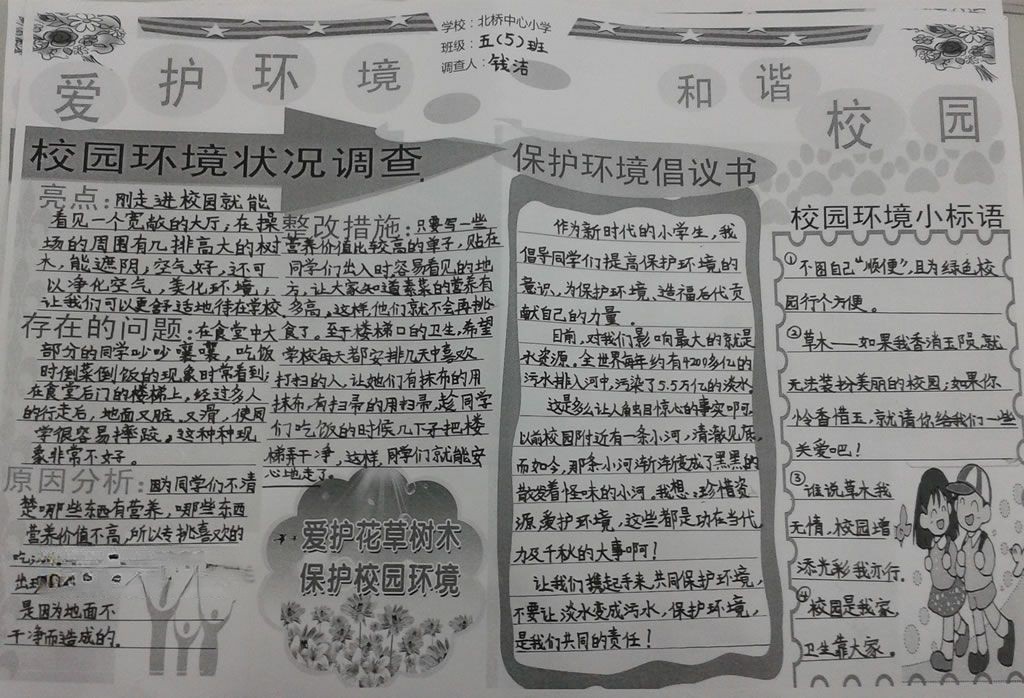 学校：北桥中心小学
班级：五(5)班
调查人：钱洁
爱护环境
和谐校园
校园环境状况调查
亮点：刚走进校园就能
看见一个宽敞的大厅，在操
场的周围有几排高大的树
木，能遮阴，空气好，还可
以净化空气，美化环境，
让我们可以更舒适地待在学校
存在的问题：在食堂中大
部分的同学吵吵嚷嚷，吃饭
时倒菜倒饭的现象时常看到；
在食堂后门的楼梯上，经过多人
的行走后，地面又脏、又滑，使同
学很容易摔跤。这种种现
象非常不好。
原因分析：因为同学们不清
楚哪些东西有营养，哪些东西
营养价值不高，所以专挑喜欢的
吃
出现
是因为地面不
干净而造成的。
整改措施：只要写一些
营养价值比较高的单子，贴在
同学们出入时容易看见的地
方，让大家知道素菜的营养有
多高，这样他们就不会再挑
食了。至于楼梯口的卫生，希望
学校每天都安排几天中喜欢
打扫的人，让她们有抹布的用
抹布，有扫帚的用扫帚，趁同学
们吃饭的时候几下子把楼
梯弄干净，这样，同学们就能安
心地走了。
爱护花草树木
保护校园环境
保护环境倡议书
作为新时代的小学生，我
倡导同学们提高保护环境的
意识，为保护环境、造福后代贡
献自己的力量。
目前，对我们影响最大的就是
水资源，全世界每年约有4200多亿的
污水排入河中，污染了5.5万亿的淡水，
这是多么让人触目惊心的事实啊！
以前校园附近有一条小河，清澈见底，
而如今，那条小河渐渐变成了黑黑的
散发着怪味的小河。我想：珍惜资
源，爱护环境，这些都是功在当代，
力及千秋的大事啊！
让我们携起手来，共同保护环境，
不要让淡水变成污水，保护环境，
是我们共同的责任！
校园环境小标语
①不图自己“顺便”，且为绿色校
园行个方便。
②草木——如果我香消玉殒，就
无法装扮美丽的校园；如果你
怜香惜玉，就请你给我们一些
关爱吧！
③谁说草木我
无情，校园增
添光彩我亦行。
④校园是我家，
卫生靠大家。